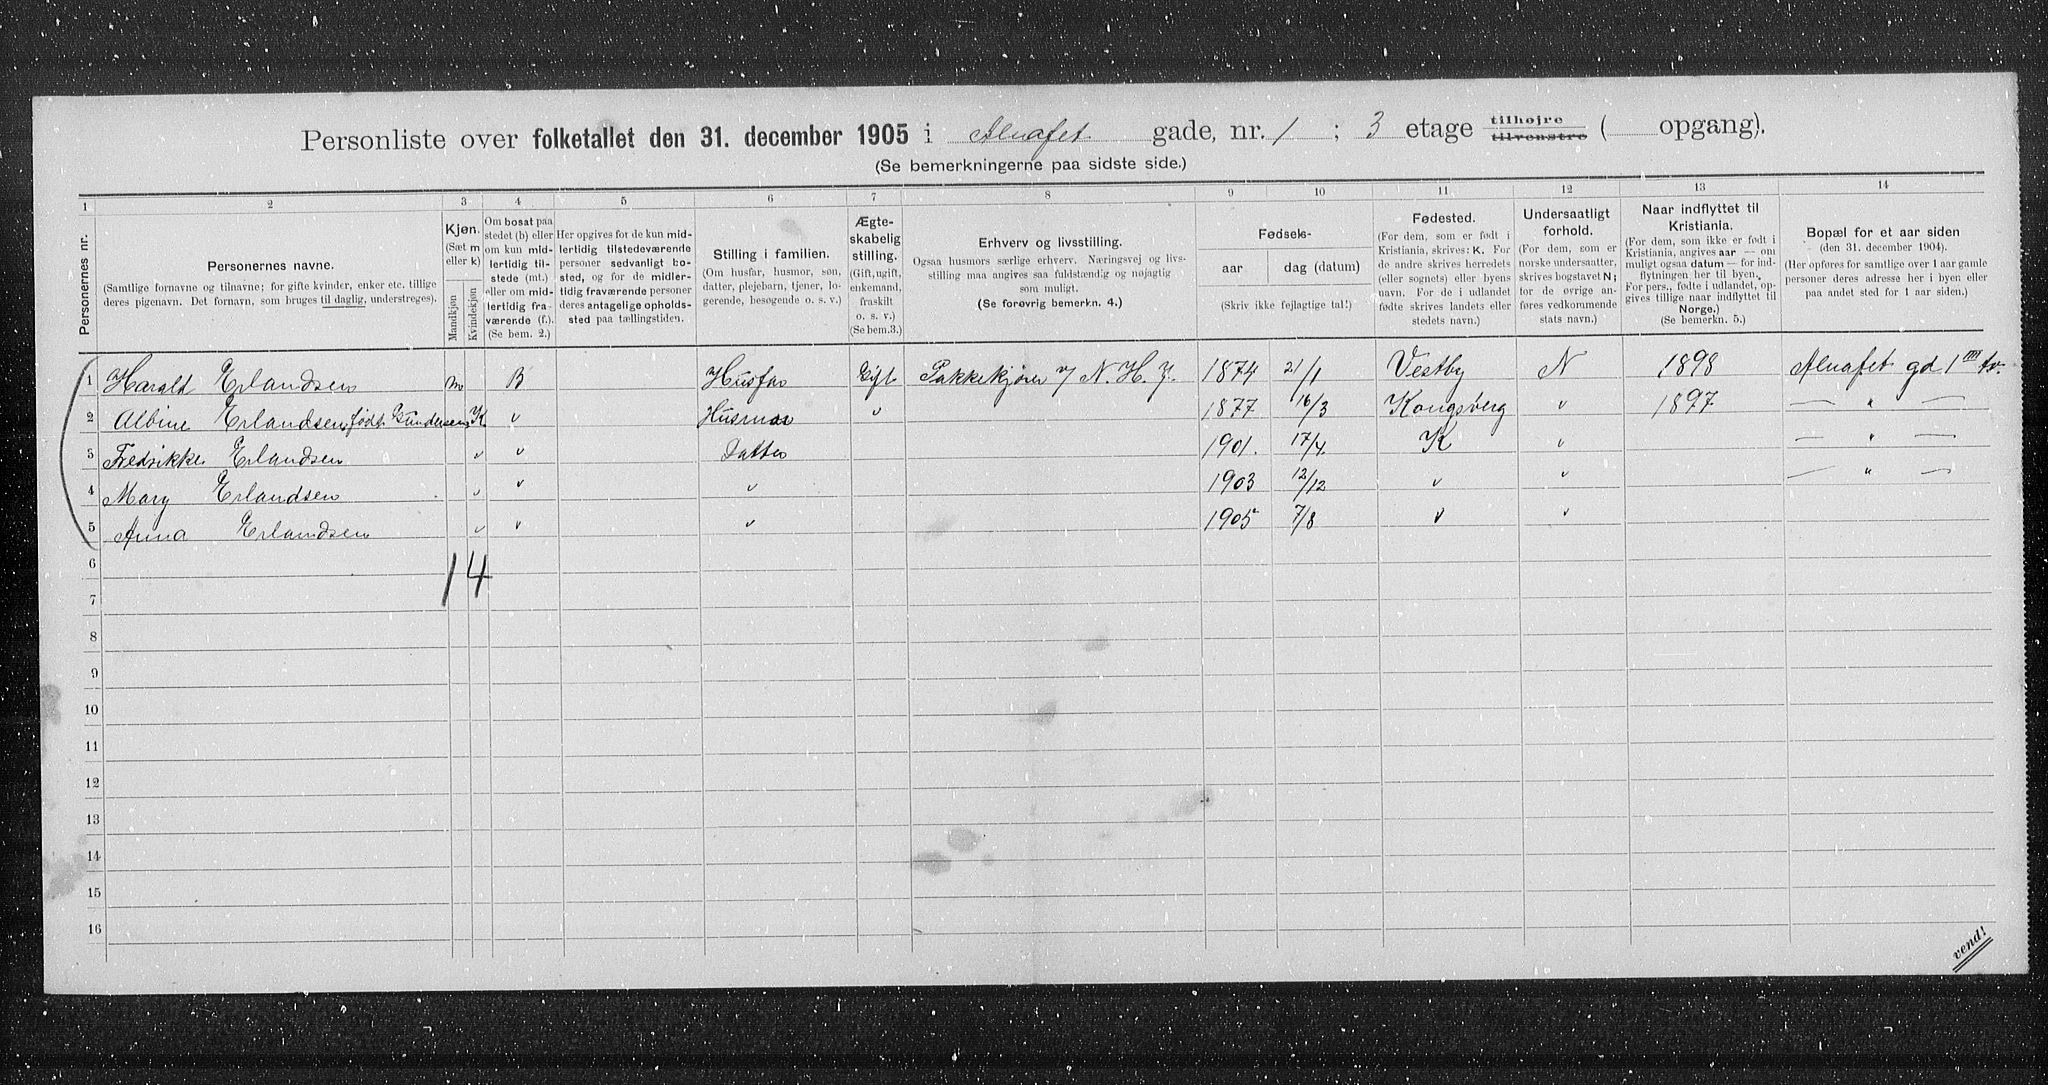 Personliste over folketallet den 31. december 1905 i Alnafet gade, nr. 1 ; 3 etage tilhøjre tilvenstre ( opgang).
(Se bemerkningerne paa sidste side.)
1 2 3 4 5 6 7 8 9 10 11 12 13 14
Personernes nr.
Personernes navne.
(Samtlige fornavne og tilnavne; for gifte kvinder, enker etc. tillige
deres pigenavn. Det fornavn, som bruges til daglig, understreges).
Kjøn.
(Sæt m
eller k)
Mandkjøn
Kvindekjøn
Om bosat paa
stedet (b) eller
om kun mid-
lertidig til-
stede (mt.)
eller om mid-
lertidig fra-
værende (f.).
(Se bem. 2.)
Her opgives for de kun mid-
lertidig tilstedeværende
personer sedvanligt bo-
sted, og for de midler-
tidig fraværende personer
deres antagelige opholds-
sted paa tællingstiden.
Stilling i familien.
(Om husfar, husmor, søn,
datter, plejebarn, tjener, lo-
gerende, besøgende o. s. v.)
Ægte-
skabelig
stilling.
(Gift, ugift,
enkemand,
fraskilt
o. s. v.)
(Se bem.3.)
Erhverv og livsstilling.
Ogsaa husmors særlige erhverv. Næringsvej og livs-
stilling maa angives saa fuldstændig og nøjagtig
som muligt.
(Se forøvrig bemerkn. 4.)
Fødsels-
aar
dag (datum)
(Skriv ikke fejlagtige tal!)
Fødested.
(For dem, som er født i
Kristiania, skrives: K. For
de andre skrives herredets
(eller sognets) eller byens
navn. For de i udlandet
fødte skrives landets eller
stedets navn.)
Undersaatligt
forhold.
(For dem, som er
norske undersaatter,
skrives bogstavet N;
for de øvrige an-
føres vedkommende
stats navn.)
Naar indflyttet til
Kristiania.
(For dem, som ikke er født i
Kristiania, angives aar — om
muligt ogsaa datum — for ind-
flytningen her til byen.
For pers., fødte i udlandet, op-
gives tillige naar indflyttet til
Norge.)
(Se bemerkn. 5.)
Bopæl for et aar siden
(den 31. december 1904).
(Her opføres for samtlige over 1 aar gamle
personer deres adresse her i byen eller
paa andet sted for 1 aar siden.)
1 Harald Erlandsen m B Husfar Gift Pakkekjører v/ N. H. J. 1874 21/1 Vestby N 1898 Alnafet gd 1 III tv.
2 Albine Erlandsen født Gundersen K " Husmor " 1877 16/3 Kongsberg " 1897 — " —
3 Fredrikke Erlandsen " " Datter 1901. 17/4 K " — " —
4 Mary Erlandsen " " " 1903 12/12 " " — " —
5 Anna Erlandsen " " " 1905 7/8 " "
6 1 4
7
8
9
10
11
12
13
14
15
16
vend!